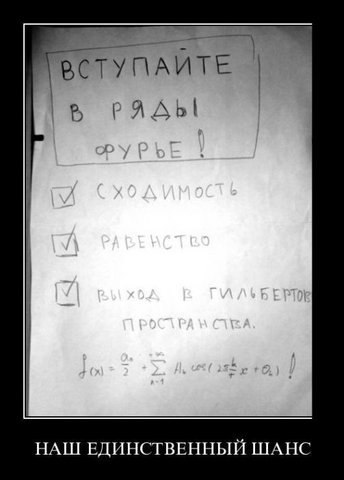 ВСТУПАЙТЕ
В РЯДЫ
ФУРЬЕ!
СХОДИМОСТЬ
РАВЕНСТВО
ВЫХОД В ГИЛЬБЕРТОВ
ПРОСТРАНСТВА.
f(x) = a₀/2 + +∞∑n=1 Aₙ cos(2π k/τ x + Θₖ)!
НАШ ЕДИНСТВЕННЫЙ ШАНС